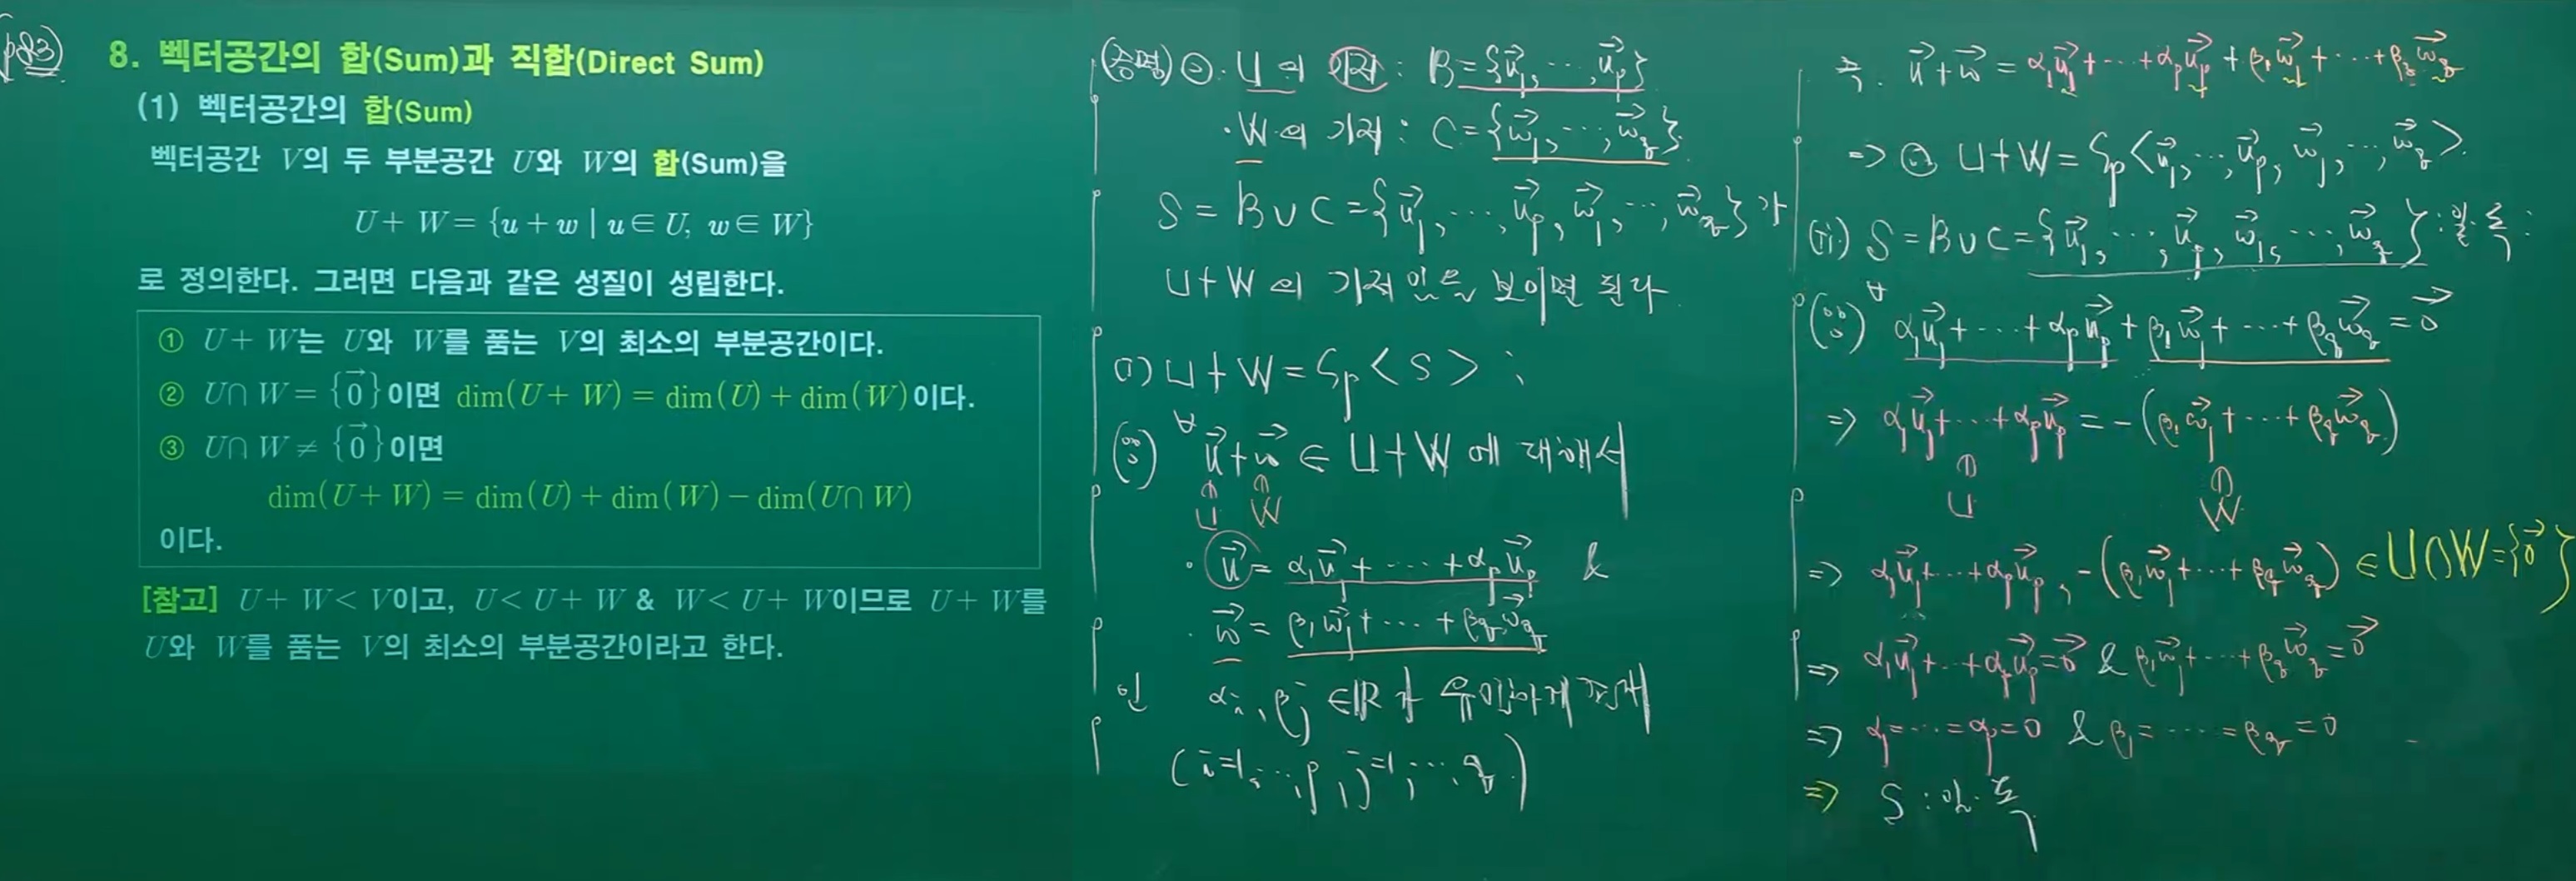 p83
8. 벡터공간의 합(Sum)과 직합(Direct Sum)
(1) 벡터공간의 합(Sum)
벡터공간 V의 두 부분공간 U와 W의 합(Sum)을
U + W = {u + w | u ∈ U, w ∈ W}
로 정의한다. 그러면 다음과 같은 성질이 성립한다.
① U + W는 U와 W를 품는 V의 최소의 부분공간이다.
② U∩W = {0⃗}이면 dim(U + W) = dim(U) + dim(W)이다.
③ U∩W ≠ {0⃗}이면
dim(U + W) = dim(U) + dim(W) − dim(U∩W)
이다.
[참고] U + W < V이고, U < U + W & W < U + W이므로 U + W를
U와 W를 품는 V의 최소의 부분공간이라고 한다.
(증명) ②. U의 기저 : B = {u⃗₁, ⋯, u⃗ₚ}
· W의 기저 : C = {w⃗₁, ⋯, w⃗_q}.
S = B ∪ C = {u⃗₁, ⋯, u⃗ₚ, w⃗₁, ⋯, w⃗_q}가
U+W의 기저임을 보이면 된다.
(i) U+W = Sp<S> ;
(∵) ∀u⃗+w⃗ ∈ U+W에 대해서
U W
· u⃗ = α₁u⃗₁ + ⋯ + αₚu⃗ₚ &
· w⃗ = β₁w⃗₁ + ⋯ + β_q w⃗_q
인 αᵢ, βⱼ ∈ ℝ가 유일하게 존재
(i=1, ⋯, p, j=1, ⋯, q)
즉. u⃗+w⃗ = α₁u⃗₁ + ⋯ + αₚu⃗ₚ + β₁w⃗₁ + ⋯ + β_q w⃗_q
=> U+W = Sp<u⃗₁, ⋯, u⃗ₚ, w⃗₁, ⋯, w⃗_q>.
(ii) S = B ∪ C = {u⃗₁, ⋯, u⃗ₚ, w⃗₁, ⋯, w⃗_q} : 일.독 :
(∵) ∀α₁u⃗₁ + ⋯ + αₚu⃗ₚ + β₁w⃗₁ + ⋯ + β_q w⃗_q = 0⃗
=> α₁u⃗₁ + ⋯ + αₚu⃗ₚ = −(β₁w⃗₁ + ⋯ + β_q w⃗_q)
U W
=> α₁u⃗₁ + ⋯ + αₚu⃗ₚ, −(β₁w⃗₁ + ⋯ + β_q w⃗_q) ∈ U∩W = {0⃗}
=> α₁u⃗₁ + ⋯ + αₚu⃗ₚ = 0⃗ & β₁w⃗₁ + ⋯ + β_q w⃗_q = 0⃗
=> α₁ = ⋯ = αₚ = 0 & β₁ = ⋯ = β_q = 0
=> S : 일.독